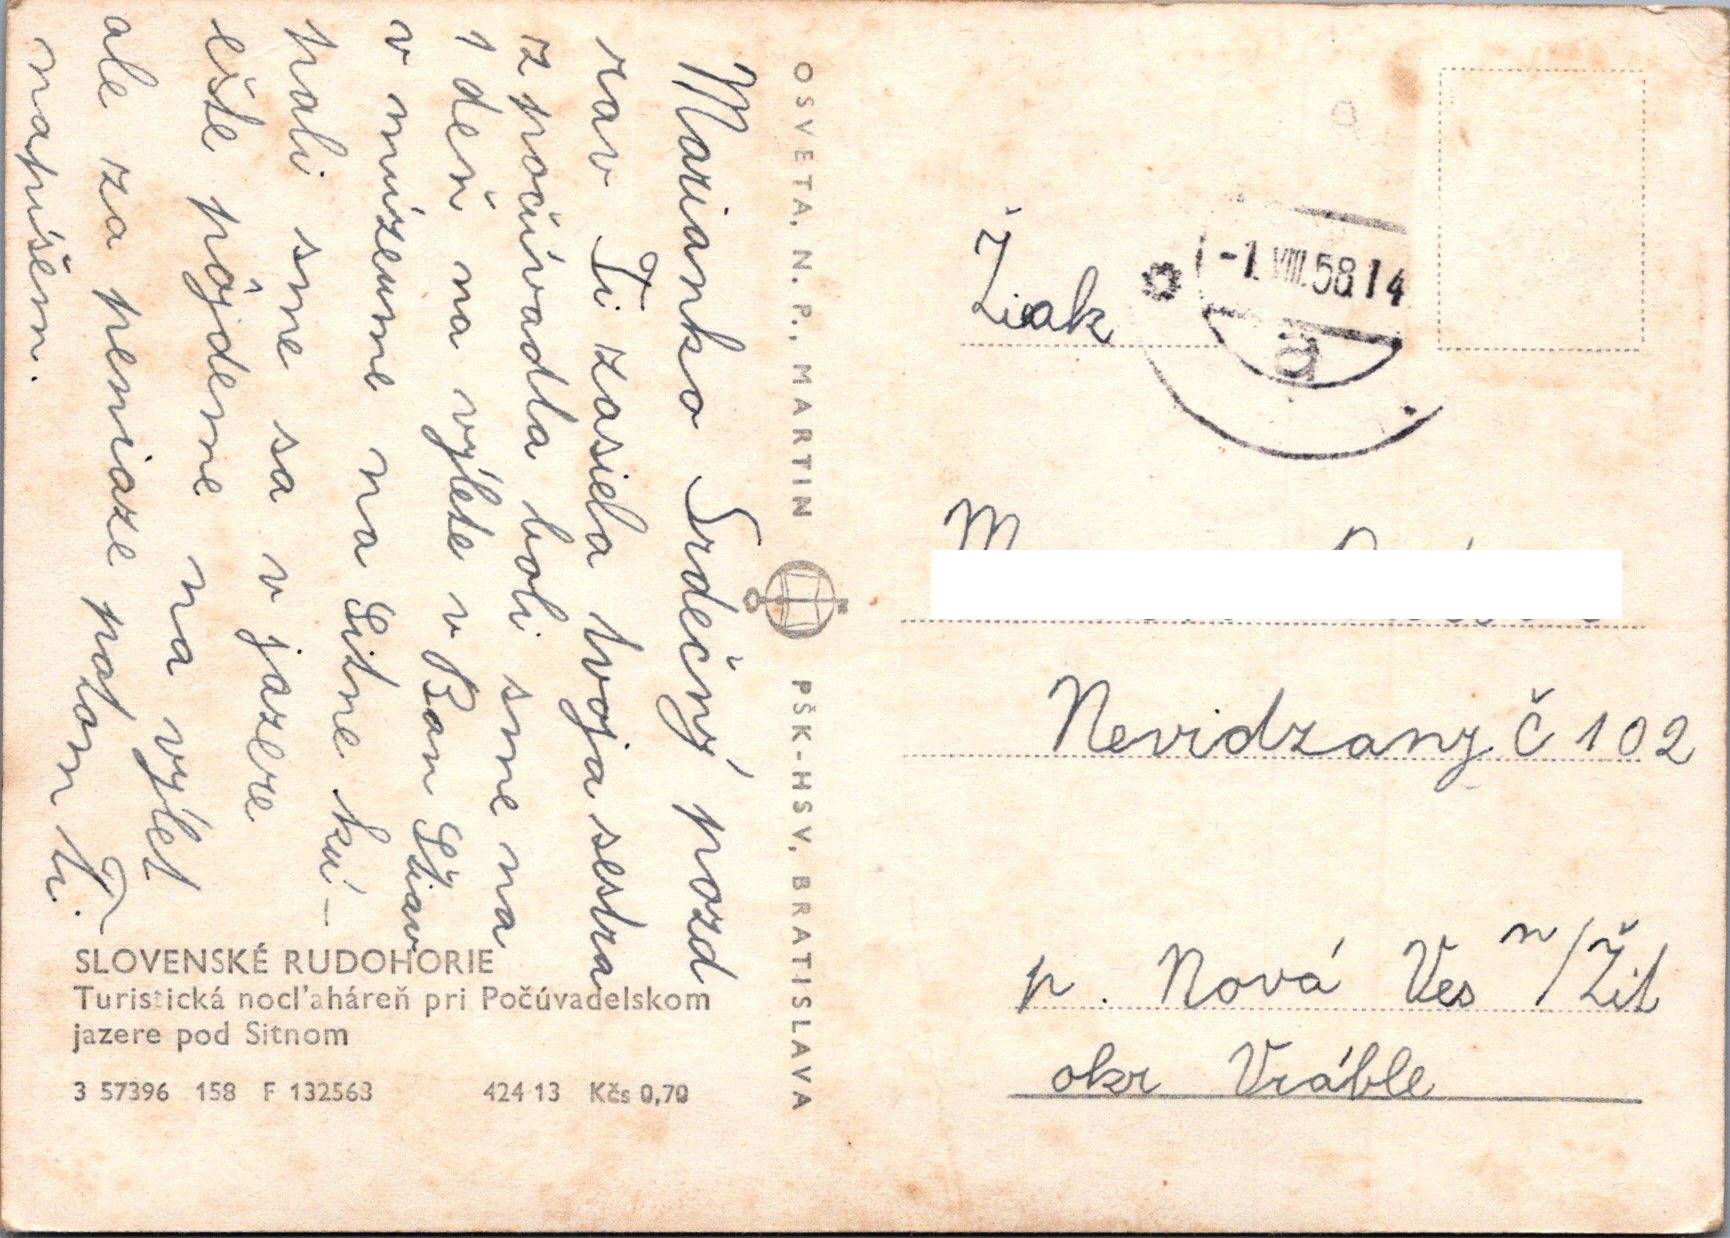 Marianko Srdečný pozd
rav Ti zasiela tvoja sestra
z počúvadla boli sme na
1 deň na výlete v Ban Štiav
v múzeume na Sitne kú-
pali sme sa v jazere
ešte pôjdeme na výlet
ale za peniaze potom Ti
napíšem.
SLOVENSKÉ RUDOHORIE
Turistická nocľaháreň pri Počúvadelskom
jazere pod Sitnom
3 57396 158 F 132563 424 13 Kčs 0,70
OSVETA, N. P., MARTIN PŠK-HSV, BRATISLAVA
-1.VIII.58 14
a
Žiak
Nevidzany č 102
p. Nová Ves n/Žit
okr Vráble